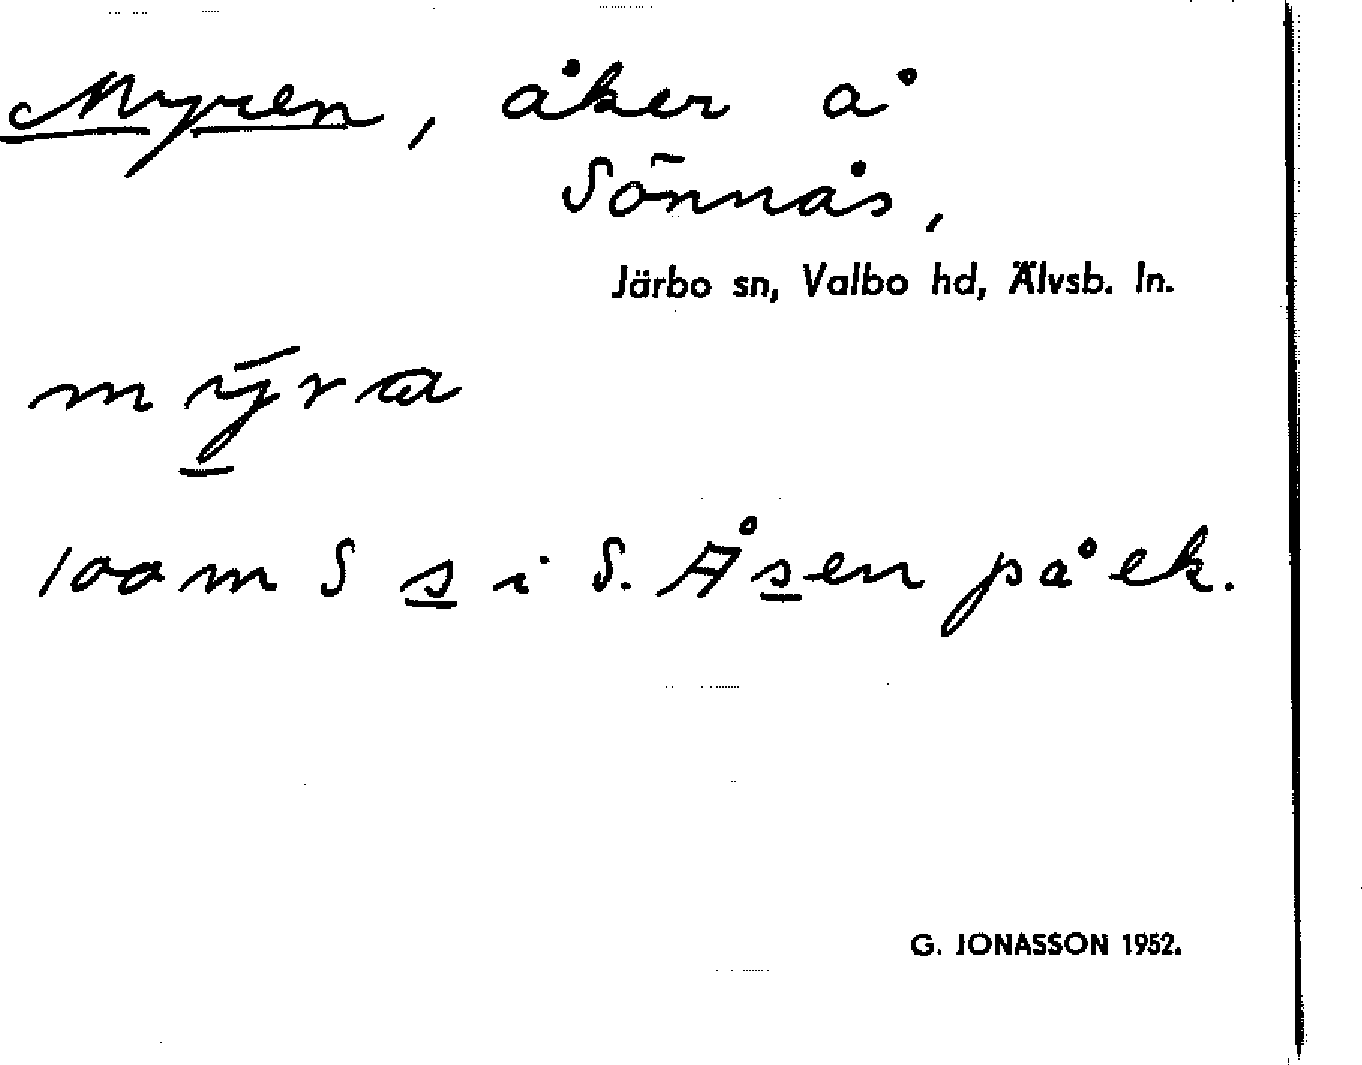 Myren, åker å
Sönnås,
Järbo sn, Valbo hd, Älvsb. ln.
mȳ̱ra
100 m S s̲ i S. Ås̲en på ek.
G. JONASSON 1952.